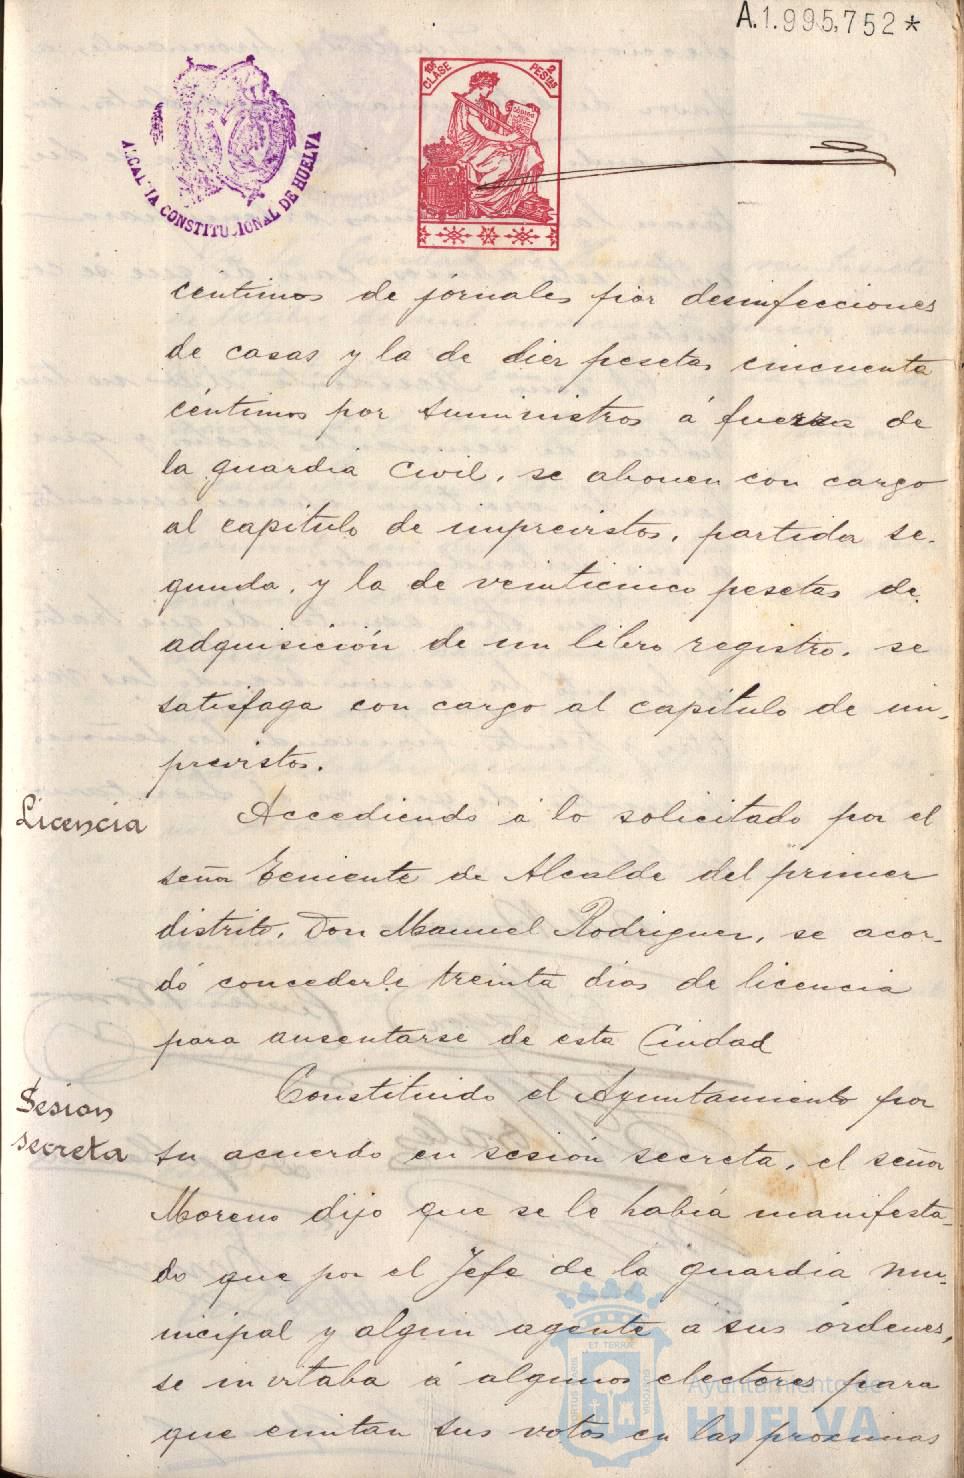 A.1.995,752*
10ª CLASE 2 PESETAS
ALCALDIA CONSTITUCIONAL DE HUELVA
centimos de jornales por desinfecciones
de casas y la de diez pesetas cincuenta
céntimos por suministros á fuerzas de
la guardia Civil, se abonen con cargo
al capitulo de imprevistos, partida se-
gunda, y la de veinticinco pesetas de
adquisición de un libro registro, se
satisfaga con cargo al capitulo de im-
previstos.
Licencia
Accediendo á lo solicitado por el
señor Teniente de Alcalde del primer
distrito, Don Manuel Rodriguez, se acor-
dó concederle treinta dias de licencia
para ausentarse de esta Ciudad
Sesion
secreta
Constituido el Ayuntamiento por
su acuerdo en sesión secreta, el señor
Moreno dijo que se le había manifesta-
do que por el Jefe de la guardia mu-
nicipal y algun agente á sus órdenes,
se invitaba á algunos electores para
que emitan sus votos en las proximas
Ayuntamiento de
HUELVA